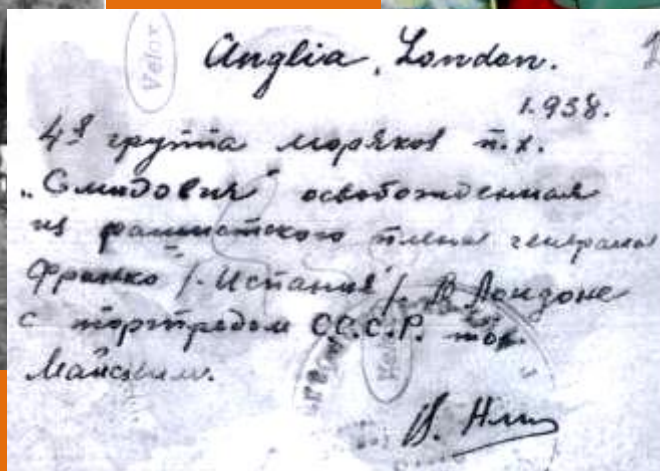 Velox
Anglia, London.
1.938.
4я группа моряков п.х.
„Смидович" освобожденная
из фашистского плена генерала
Франко /-Испания/. В Лондоне
с портредом С.С.С.Р. тов.
Майским.